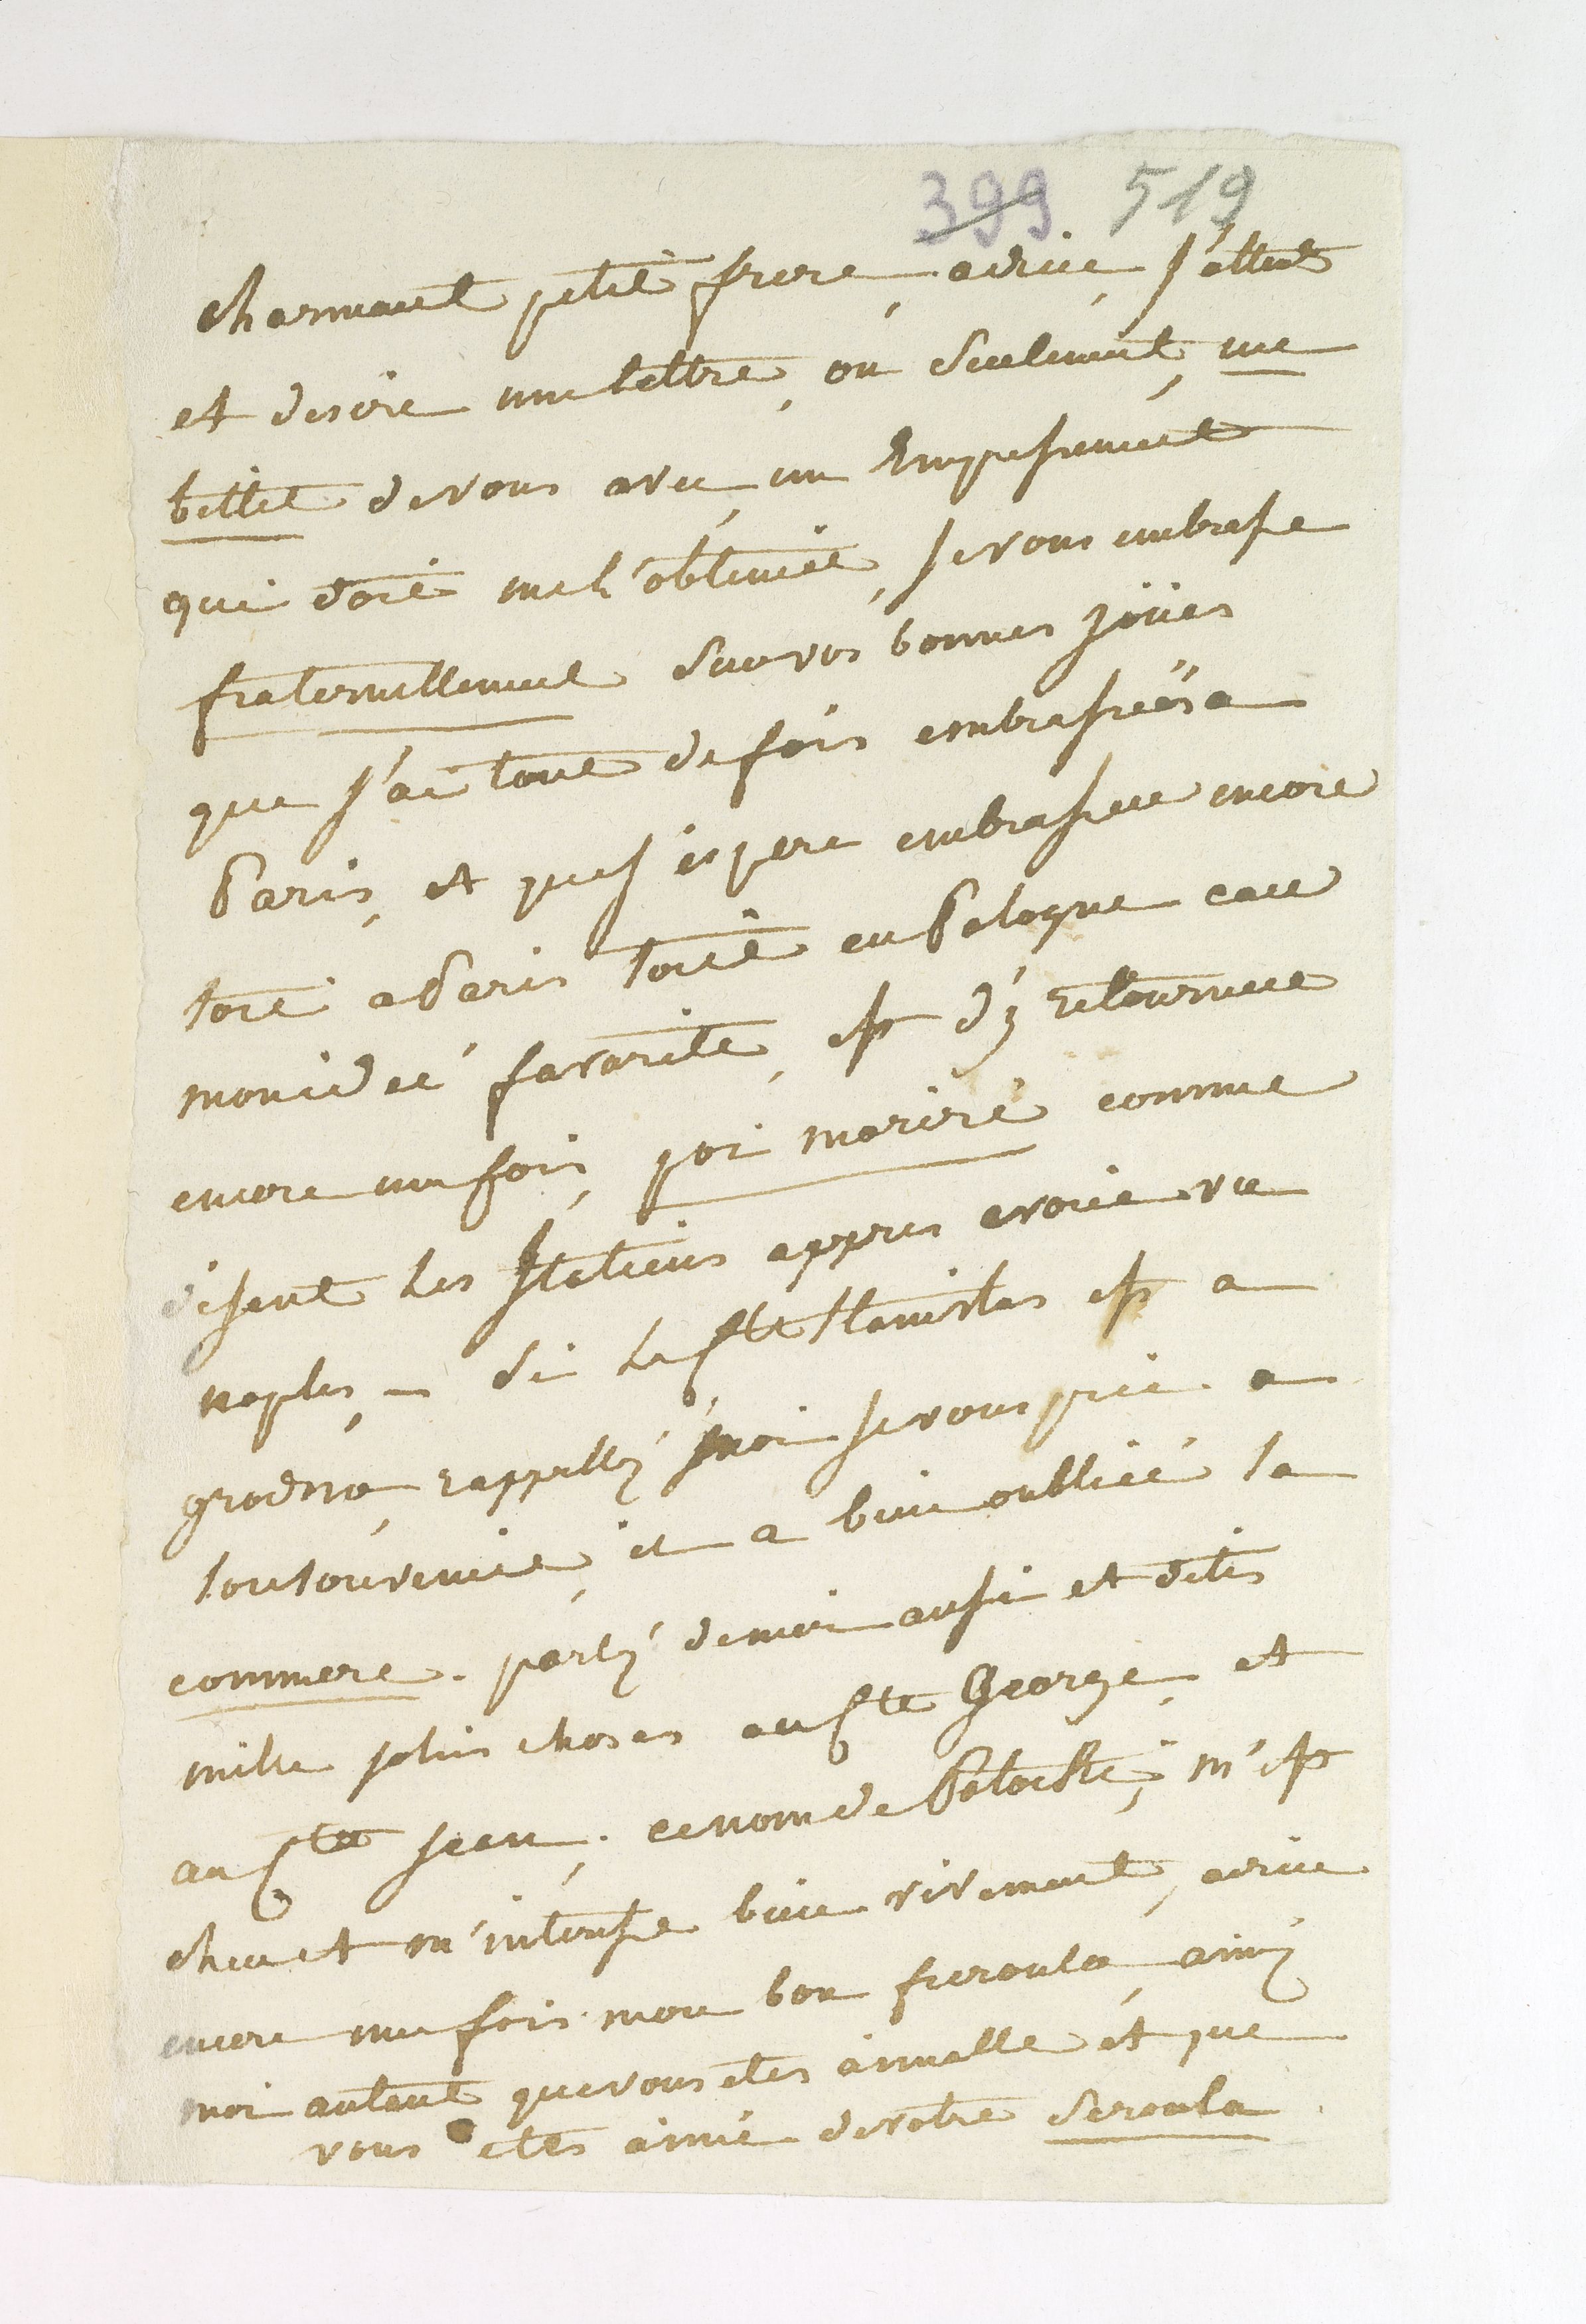 399 519
charmant petit frere, adieu, j'attent
et desire une lettre, ou seulement, une
billet de vous avec, un Empressement
qui doit me l'obtenir, je vous embrasse
fraternellement sur vos bonnes joües
que j'ai tout de fois embrassées a
Paris, et que j'espere embrasser encore
soit a Paris soit en Pologne car
mon idée favorite, est d'y retourner
encore une fois, poi morire comme
disent les Italiens appres avoir vu
naples, – si le Cte Stanislas est a
grodno, rappellé moi je vous prie a
son souvenir, il a bien oublié sa
commere. parlé de moi aussi et dites
mille jolies choses au Cte George, et
au Cte Jean, ce nom de Potocki, m'est
cher et m'interesse bien vivement, adieu
encore une fois mon bon freroula aimé
moi autant que vous etes aimable et que
vous etes aimé de votre seroula.